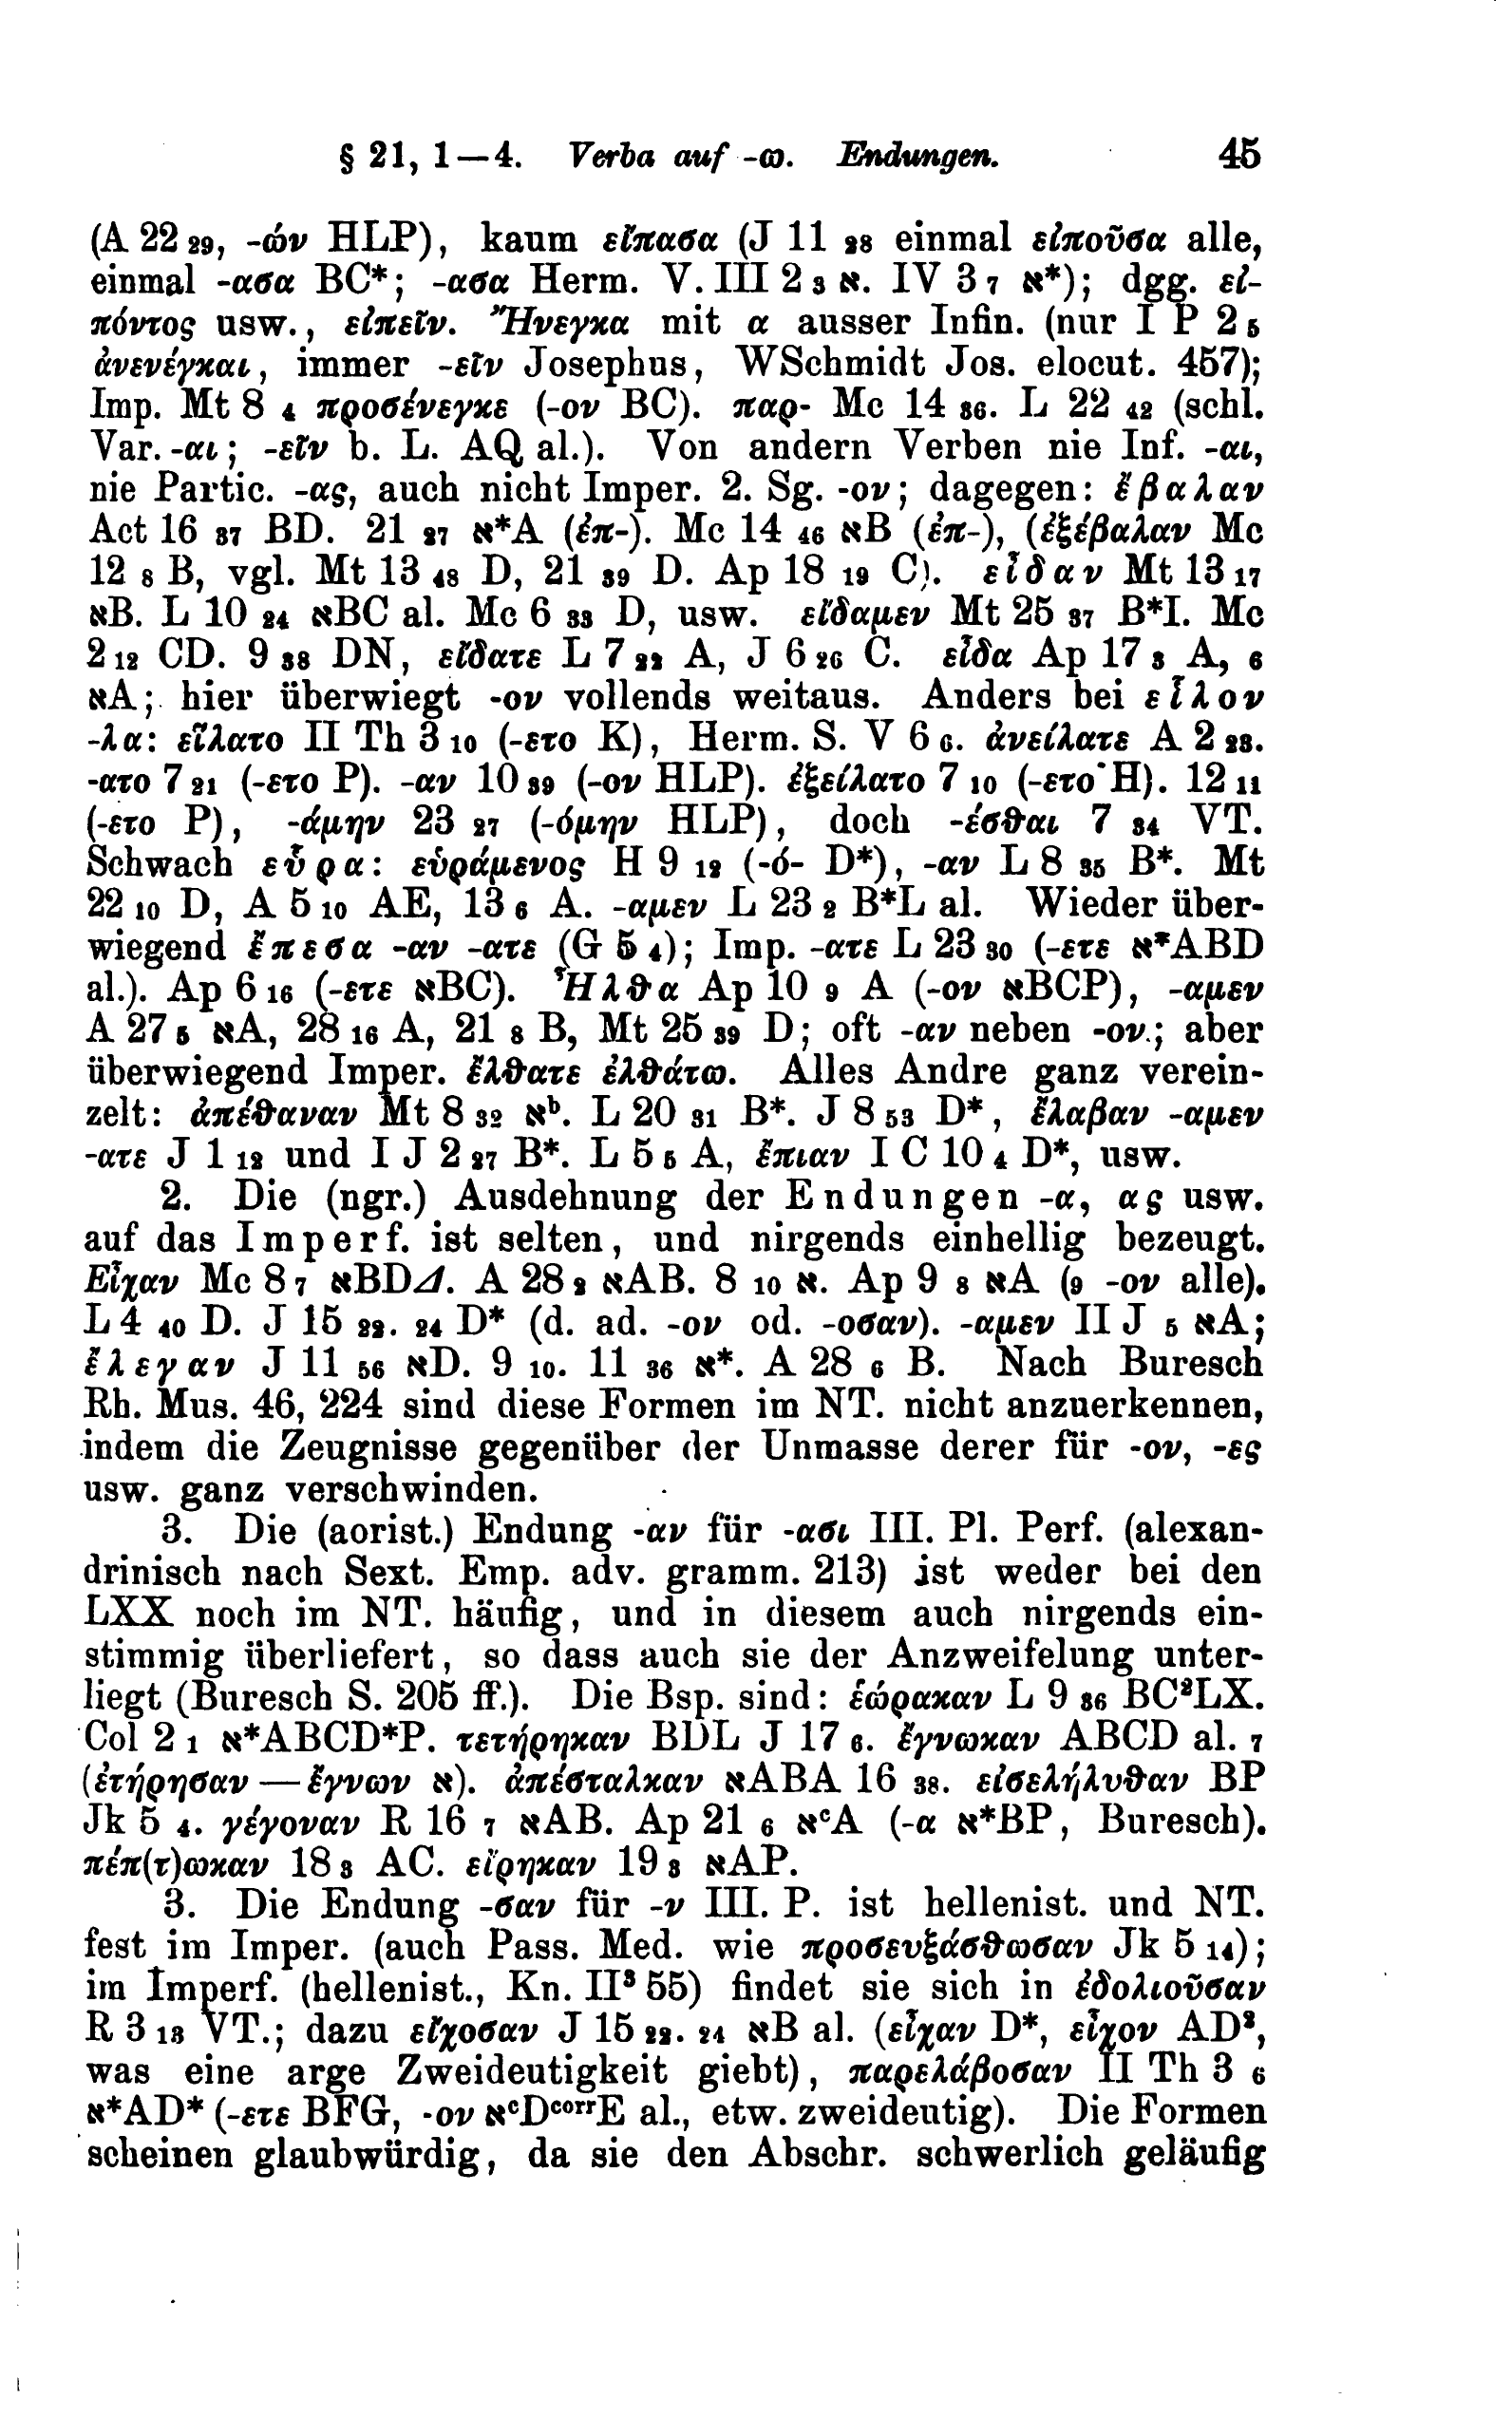 § 21, 1—4. Verba auf -ω. Endungen. 45
(A 22 29, -ών HLP), kaum εἴπασα (J 11 28 einmal εἰποῦσα alle,
einmal -ασα BC*; -ασα Herm. V. III 2 3 א. IV 3 7 א*); dgg. εἰ-
πόντος usw., εἰπεῖν. Ἤνεγκα mit α ausser Infin. (nur I P 2 5
ἀνενέγκαι, immer -εῖν Josephus, WSchmidt Jos. elocut. 457);
Imp. Mt 8 4 προσένεγκε (-ον BC). παρ- Mc 14 36. L 22 42 (schl.
Var. -αι; -εῖν b. L. AQ al.). Von andern Verben nie Inf. -αι,
nie Partic. -ας, auch nicht Imper. 2. Sg. -ον; dagegen: ἔβαλαν
Act 16 37 BD. 21 27 א*A (ἐπ-). Mc 14 46 אB (ἐπ-), (ἐξέβαλαν Mc
12 8 B, vgl. Mt 13 48 D, 21 39 D. Ap 18 19 C). εἶδαν Mt 13 17
אB. L 10 24 אBC al. Mc 6 33 D, usw. εἴδαμεν Mt 25 37 B*I. Mc
2 12 CD. 9 38 DN, εἴδατε L 7 22 A, J 6 26 C. εἶδα Ap 17 3 A, 6
אA; hier überwiegt -ον vollends weitaus. Anders bei εἷλον
-λα: εἵλατο II Th 3 10 (-ετο K), Herm. S. V 6 6. ἀνείλατε A 2 23.
-ατο 7 21 (-ετο P). -αν 10 39 (-ον HLP). ἐξείλατο 7 10 (-ετο H). 12 11
(-ετο P), -άμην 23 27 (-όμην HLP), doch -έσθαι 7 34 VT.
Schwach εὗρα: εὑράμενος H 9 12 (-ό- D*), -αν L 8 35 B*. Mt
22 10 D, A 5 10 AE, 13 6 A. -αμεν L 23 2 B*L al. Wieder über-
wiegend ἔπεσα -αν -ατε (G 5 4); Imp. -ατε L 23 30 (-ετε א*ABD
al.). Ap 6 16 (-ετε אBC). Ἦλθα Ap 10 9 A (-ον אBCP), -αμεν
A 27 5 אA, 28 16 A, 21 8 B, Mt 25 39 D; oft -αν neben -ον; aber
überwiegend Imper. ἔλθατε ἐλθάτω. Alles Andre ganz verein-
zelt: ἀπέθαναν Mt 8 32 אb. L 20 31 B*. J 8 53 D*, ἔλαβαν -αμεν
-ατε J 1 12 und I J 2 27 B*. L 5 5 A, ἔπιαν I C 10 4 D*, usw.
2. Die (ngr.) Ausdehnung der Endungen -α, ας usw.
auf das Imperf. ist selten, und nirgends einhellig bezeugt.
Εἶχαν Mc 8 7 אBDΔ. A 28 2 אAB. 8 10 א. Ap 9 8 אA (9 -ον alle).
L 4 40 D. J 15 22. 24 D* (d. ad. -ον od. -οσαν). -αμεν II J 5 אA;
ἔλεγαν J 11 56 אD. 9 10. 11 36 א*. A 28 6 B. Nach Buresch
Rh. Mus. 46, 224 sind diese Formen im NT. nicht anzuerkennen,
indem die Zeugnisse gegenüber der Unmasse derer für -ον, -ες
usw. ganz verschwinden.
3. Die (aorist.) Endung -αν für -ασι III. Pl. Perf. (alexan-
drinisch nach Sext. Emp. adv. gramm. 213) ist weder bei den
LXX noch im NT. häufig, und in diesem auch nirgends ein-
stimmig überliefert, so dass auch sie der Anzweifelung unter-
liegt (Buresch S. 205 ff.). Die Bsp. sind: ἑώρακαν L 9 36 BC²LX.
Col 2 1 א*ABCD*P. τετήρηκαν BDL J 17 6. ἔγνωκαν ABCD al. 7
(ἐτήρησαν — ἔγνων א). ἀπέσταλκαν אABA 16 38. εἰσελήλυθαν BP
Jk 5 4. γέγοναν R 16 7 אAB. Ap 21 6 אcA (-α א*BP, Buresch).
πέπ(τ)ωκαν 18 3 AC. εἴρηκαν 19 3 אAP.
3. Die Endung -σαν für -ν III. P. ist hellenist. und NT.
fest im Imper. (auch Pass. Med. wie προσευξάσθωσαν Jk 5 14);
im Imperf. (hellenist., Kn. II³ 55) findet sie sich in ἐδολιοῦσαν
R 3 13 VT.; dazu εἴχοσαν J 15 22. 24 אB al. (εἶχαν D*, εἶχον AD²,
was eine arge Zweideutigkeit giebt), παρελάβοσαν II Th 3 6
א*AD* (-ετε BFG, -ον אcDcorrE al., etw. zweideutig). Die Formen
scheinen glaubwürdig, da sie den Abschr. schwerlich geläufig